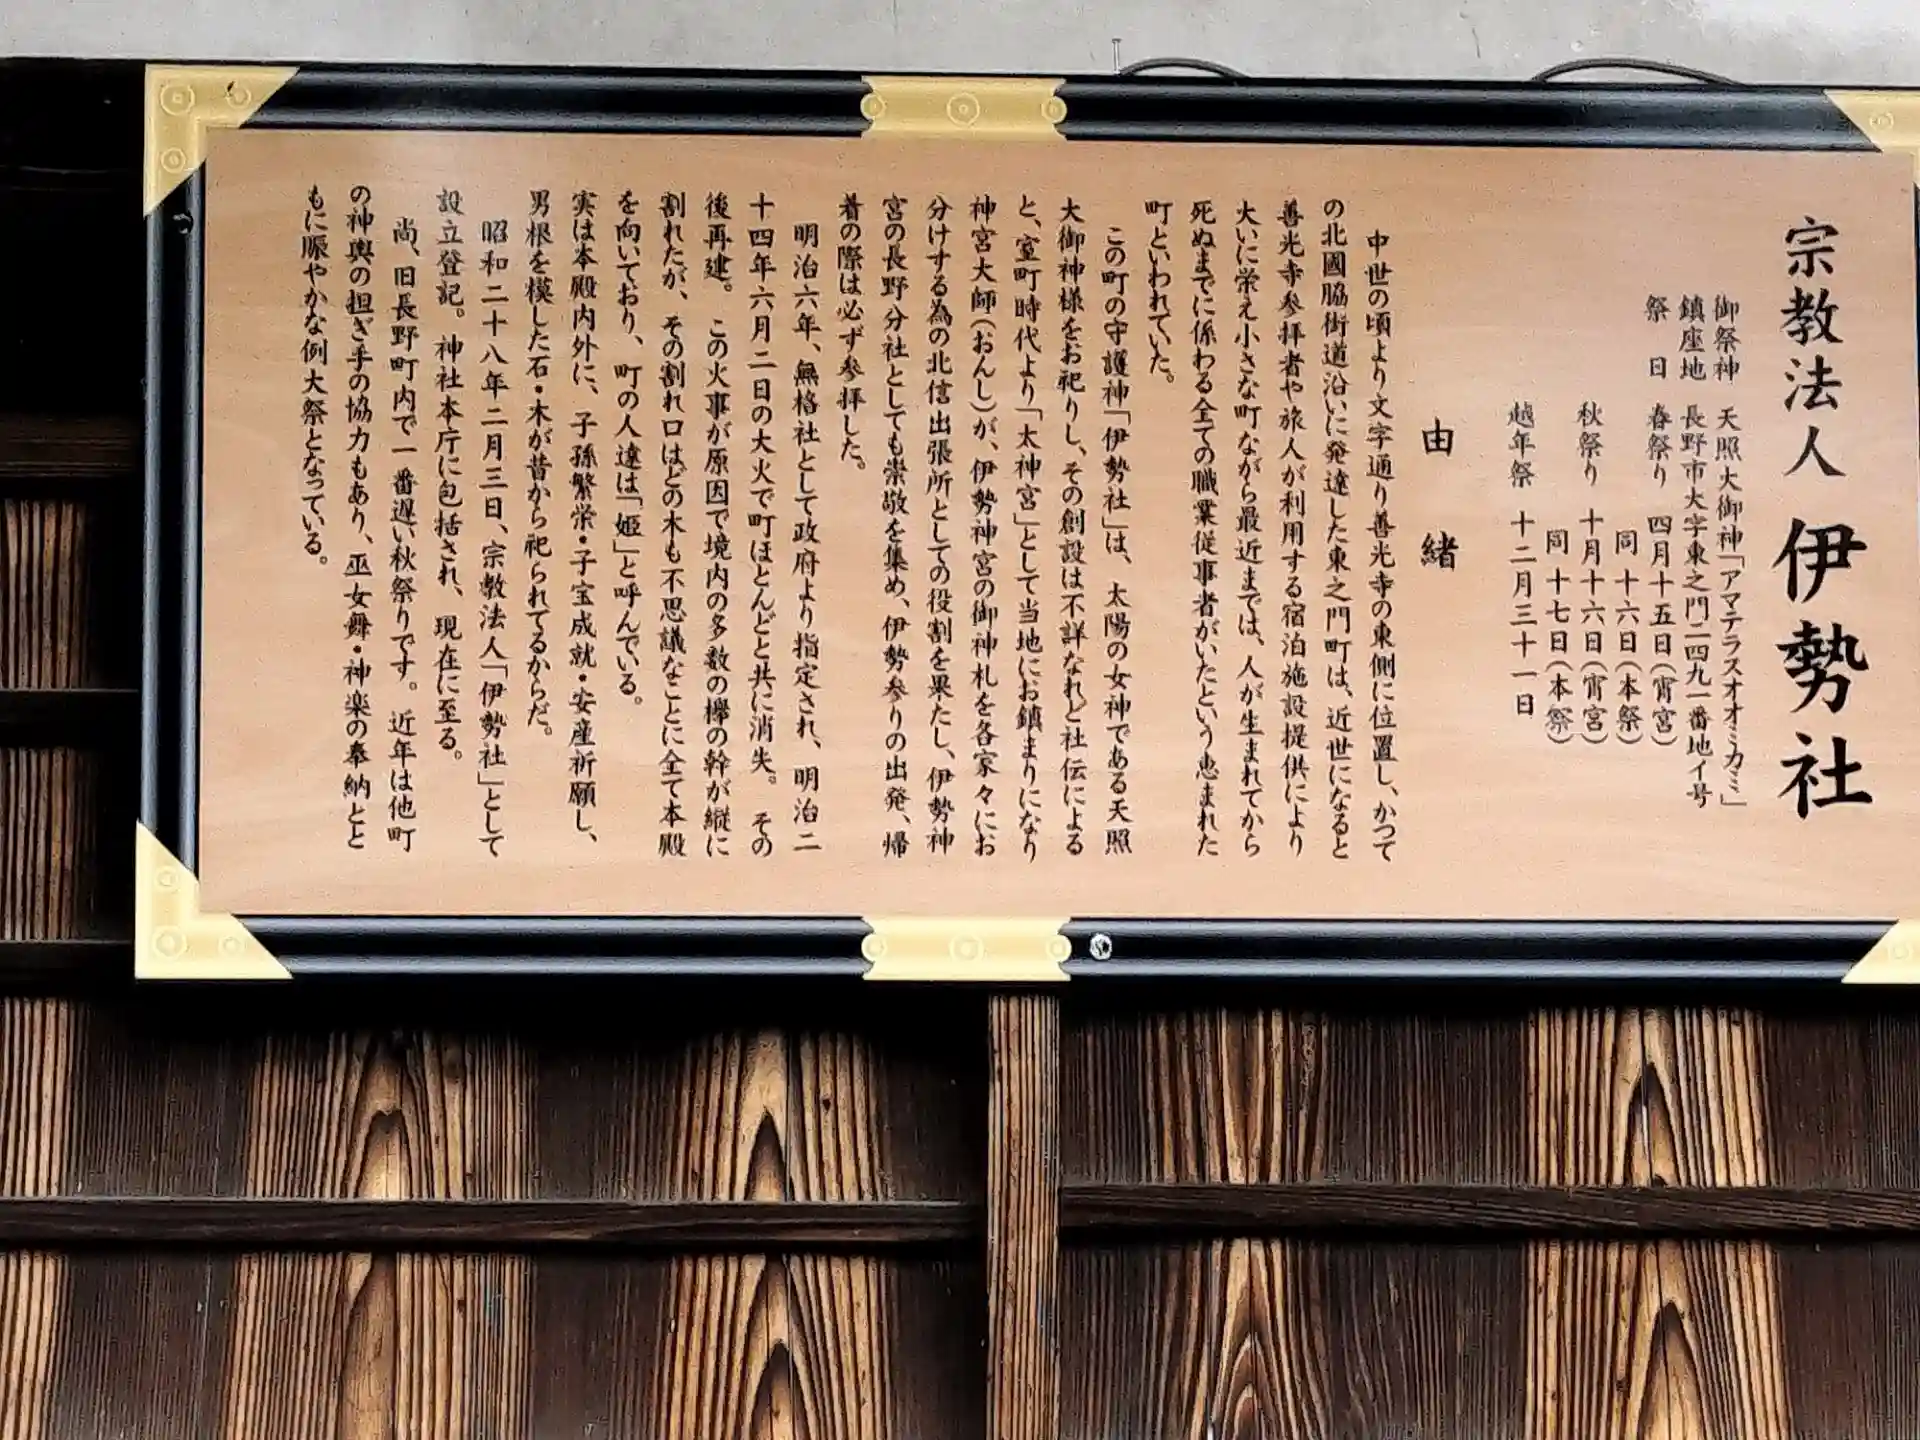 宗教法人 伊勢社
御祭神 天照大御神「アマテラスオオミカミ」
鎮座地 長野市大字東之門二四九一番地イ号
祭日 春祭り 四月十五日(宵宮)
同 十六日(本祭)
秋祭り 十月十六日(宵宮)
同 十七日(本祭)
越年祭 十二月三十一日
由緒
中世の頃より文字通り善光寺の東側に位置し、かつて
の北國脇街道沿いに発達した東之門町は、近世になると
善光寺参拝者や旅人が利用する宿泊施設提供により
大いに栄え小さな町ながら最近までは、人が生まれてから
死ぬまでに係わる全ての職業従事者がいたという恵まれた
町といわれていた。
この町の守護神「伊勢社」は、太陽の女神である天照
大御神様をお祀りし、その創設は不詳なれど社伝による
と、室町時代より「太神宮」として当地にお鎮まりになり
神宮大師(おんし)が、伊勢神宮の御神札を各家々にお
分けする為の北信出張所としての役割を果たし、伊勢神
宮の長野分社としても崇敬を集め、伊勢参りの出発、帰
着の際は必ず参拝した。
明治六年、無格社として政府より指定され、明治二
十四年六月二日の大火で町ほとんどと共に消失。その
後再建。この火事が原因で境内の多数の欅の幹が縦に
割れたが、その割れ口はどの木も不思議なことに全て本殿
を向いており、町の人達は「姫」と呼んでいる。
実は本殿内外に、子孫繁栄・子宝成就・安産祈願し、
男根を模した石・木が昔から祀られてるからだ。
昭和二十八年二月三日、宗教法人「伊勢社」として
設立登記。神社本庁に包括され、現在に至る。
尚、旧長野町内で一番遅い秋祭りです。近年は他町
の神輿の担ぎ手の協力もあり、巫女舞・神楽の奉納とと
もに賑やかな例大祭となっている。